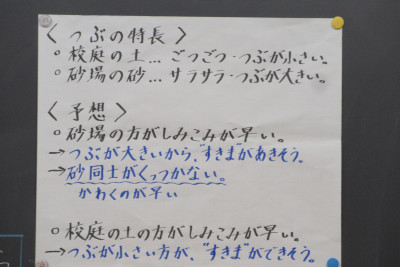 〈 つぶの特長 〉
○ 校庭の土… ごつごつ・つぶが小さい。
○ 砂場の砂… サラサラ・つぶが大きい。
〈 予想 〉
○ 砂場の方がしみこみが早い。
→つぶが大きいから、"すきま"があきそう。
→砂同士がくっつかない。
かわくのが早い
○ 校庭の土の方がしみこみが早い。
→つぶが小さい方が、"すきま"ができそう。